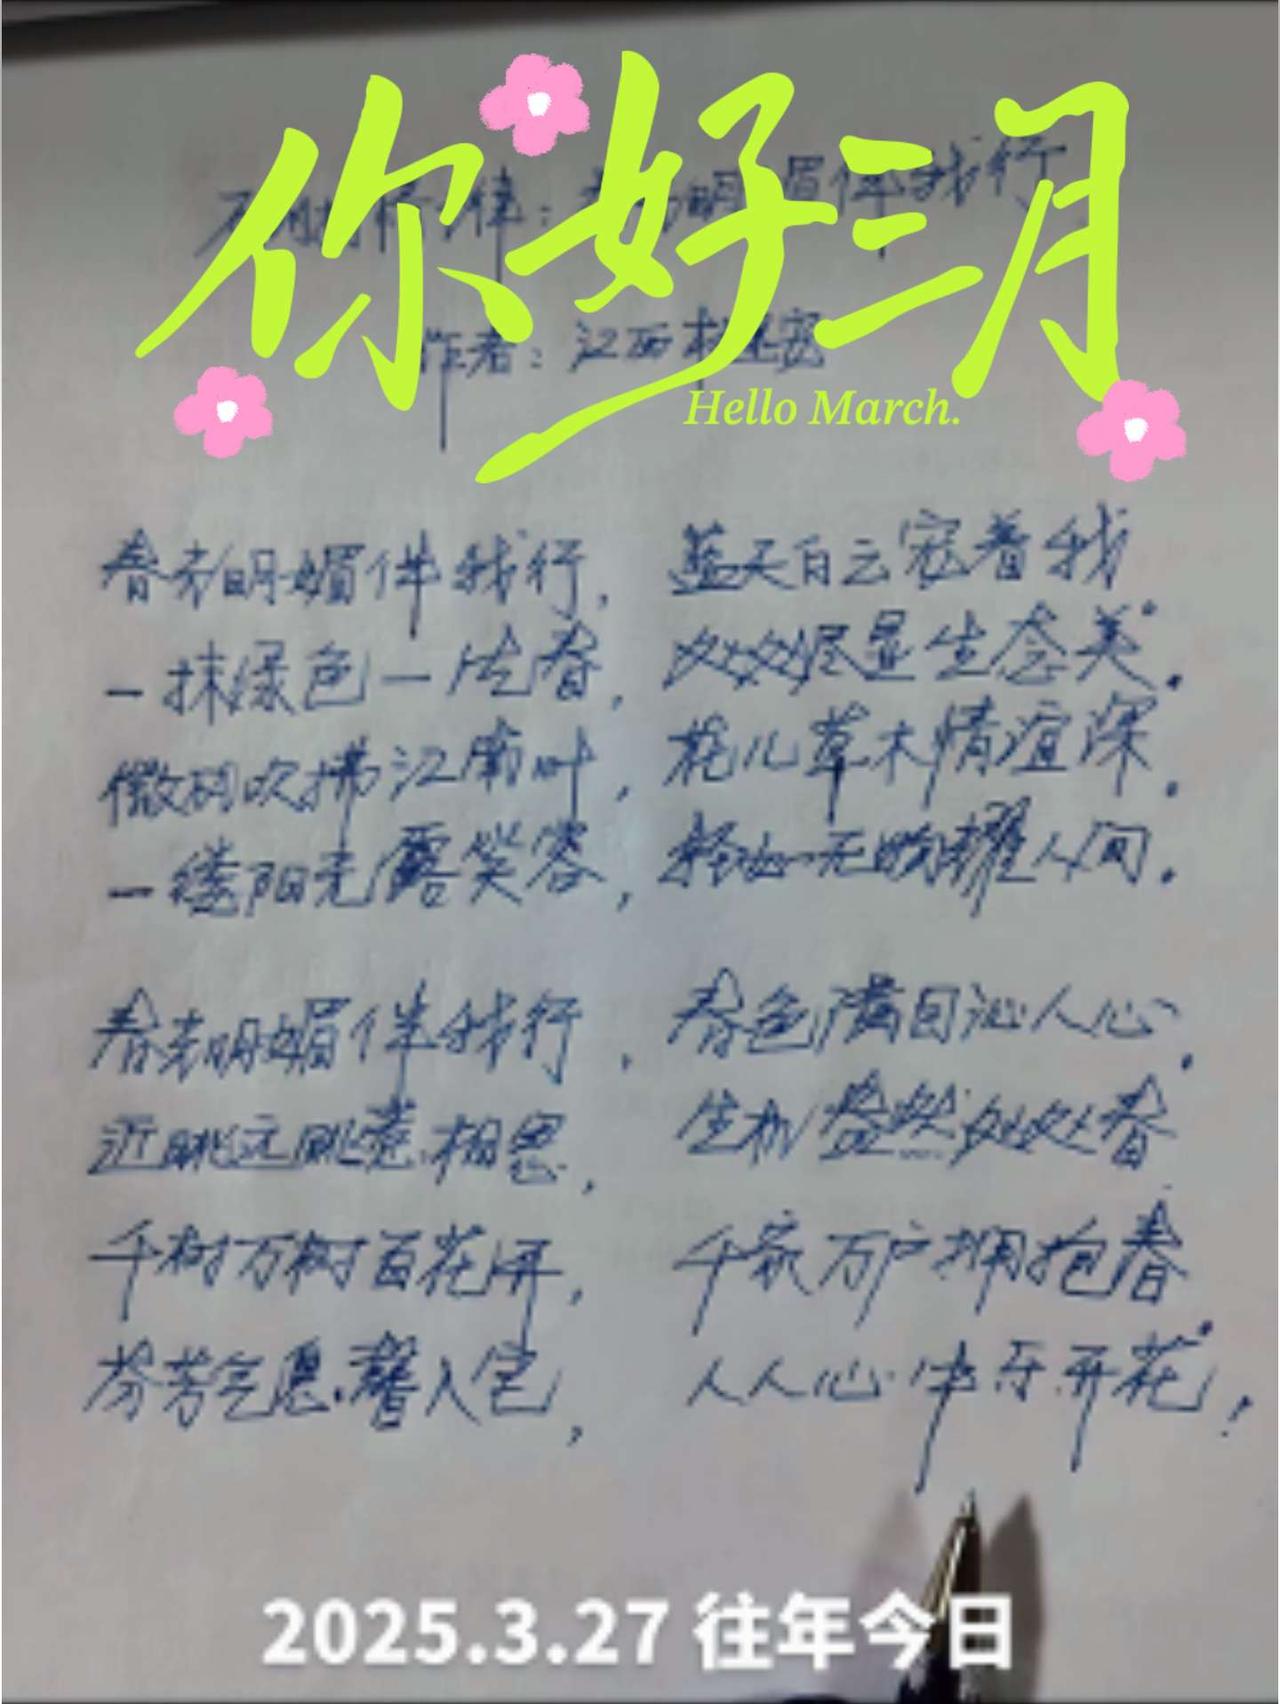 你好三月
Hello March.
作者：江西
春光明媚伴我行，蓝天白云宠着我。
一抹绿色一片春，处处尽显生态美。
微风吹拂江南叶，花儿草木情谊深。
一缕阳光露笑容，人间。
春光明媚伴我行，春色满目沁人心。
近眺远眺惹相思，生机盎然处处春
千树万树百花开，千家万户拥抱春
芬芳气息馨入宅，人人心中乐开花！
2025.3.27 往年今日